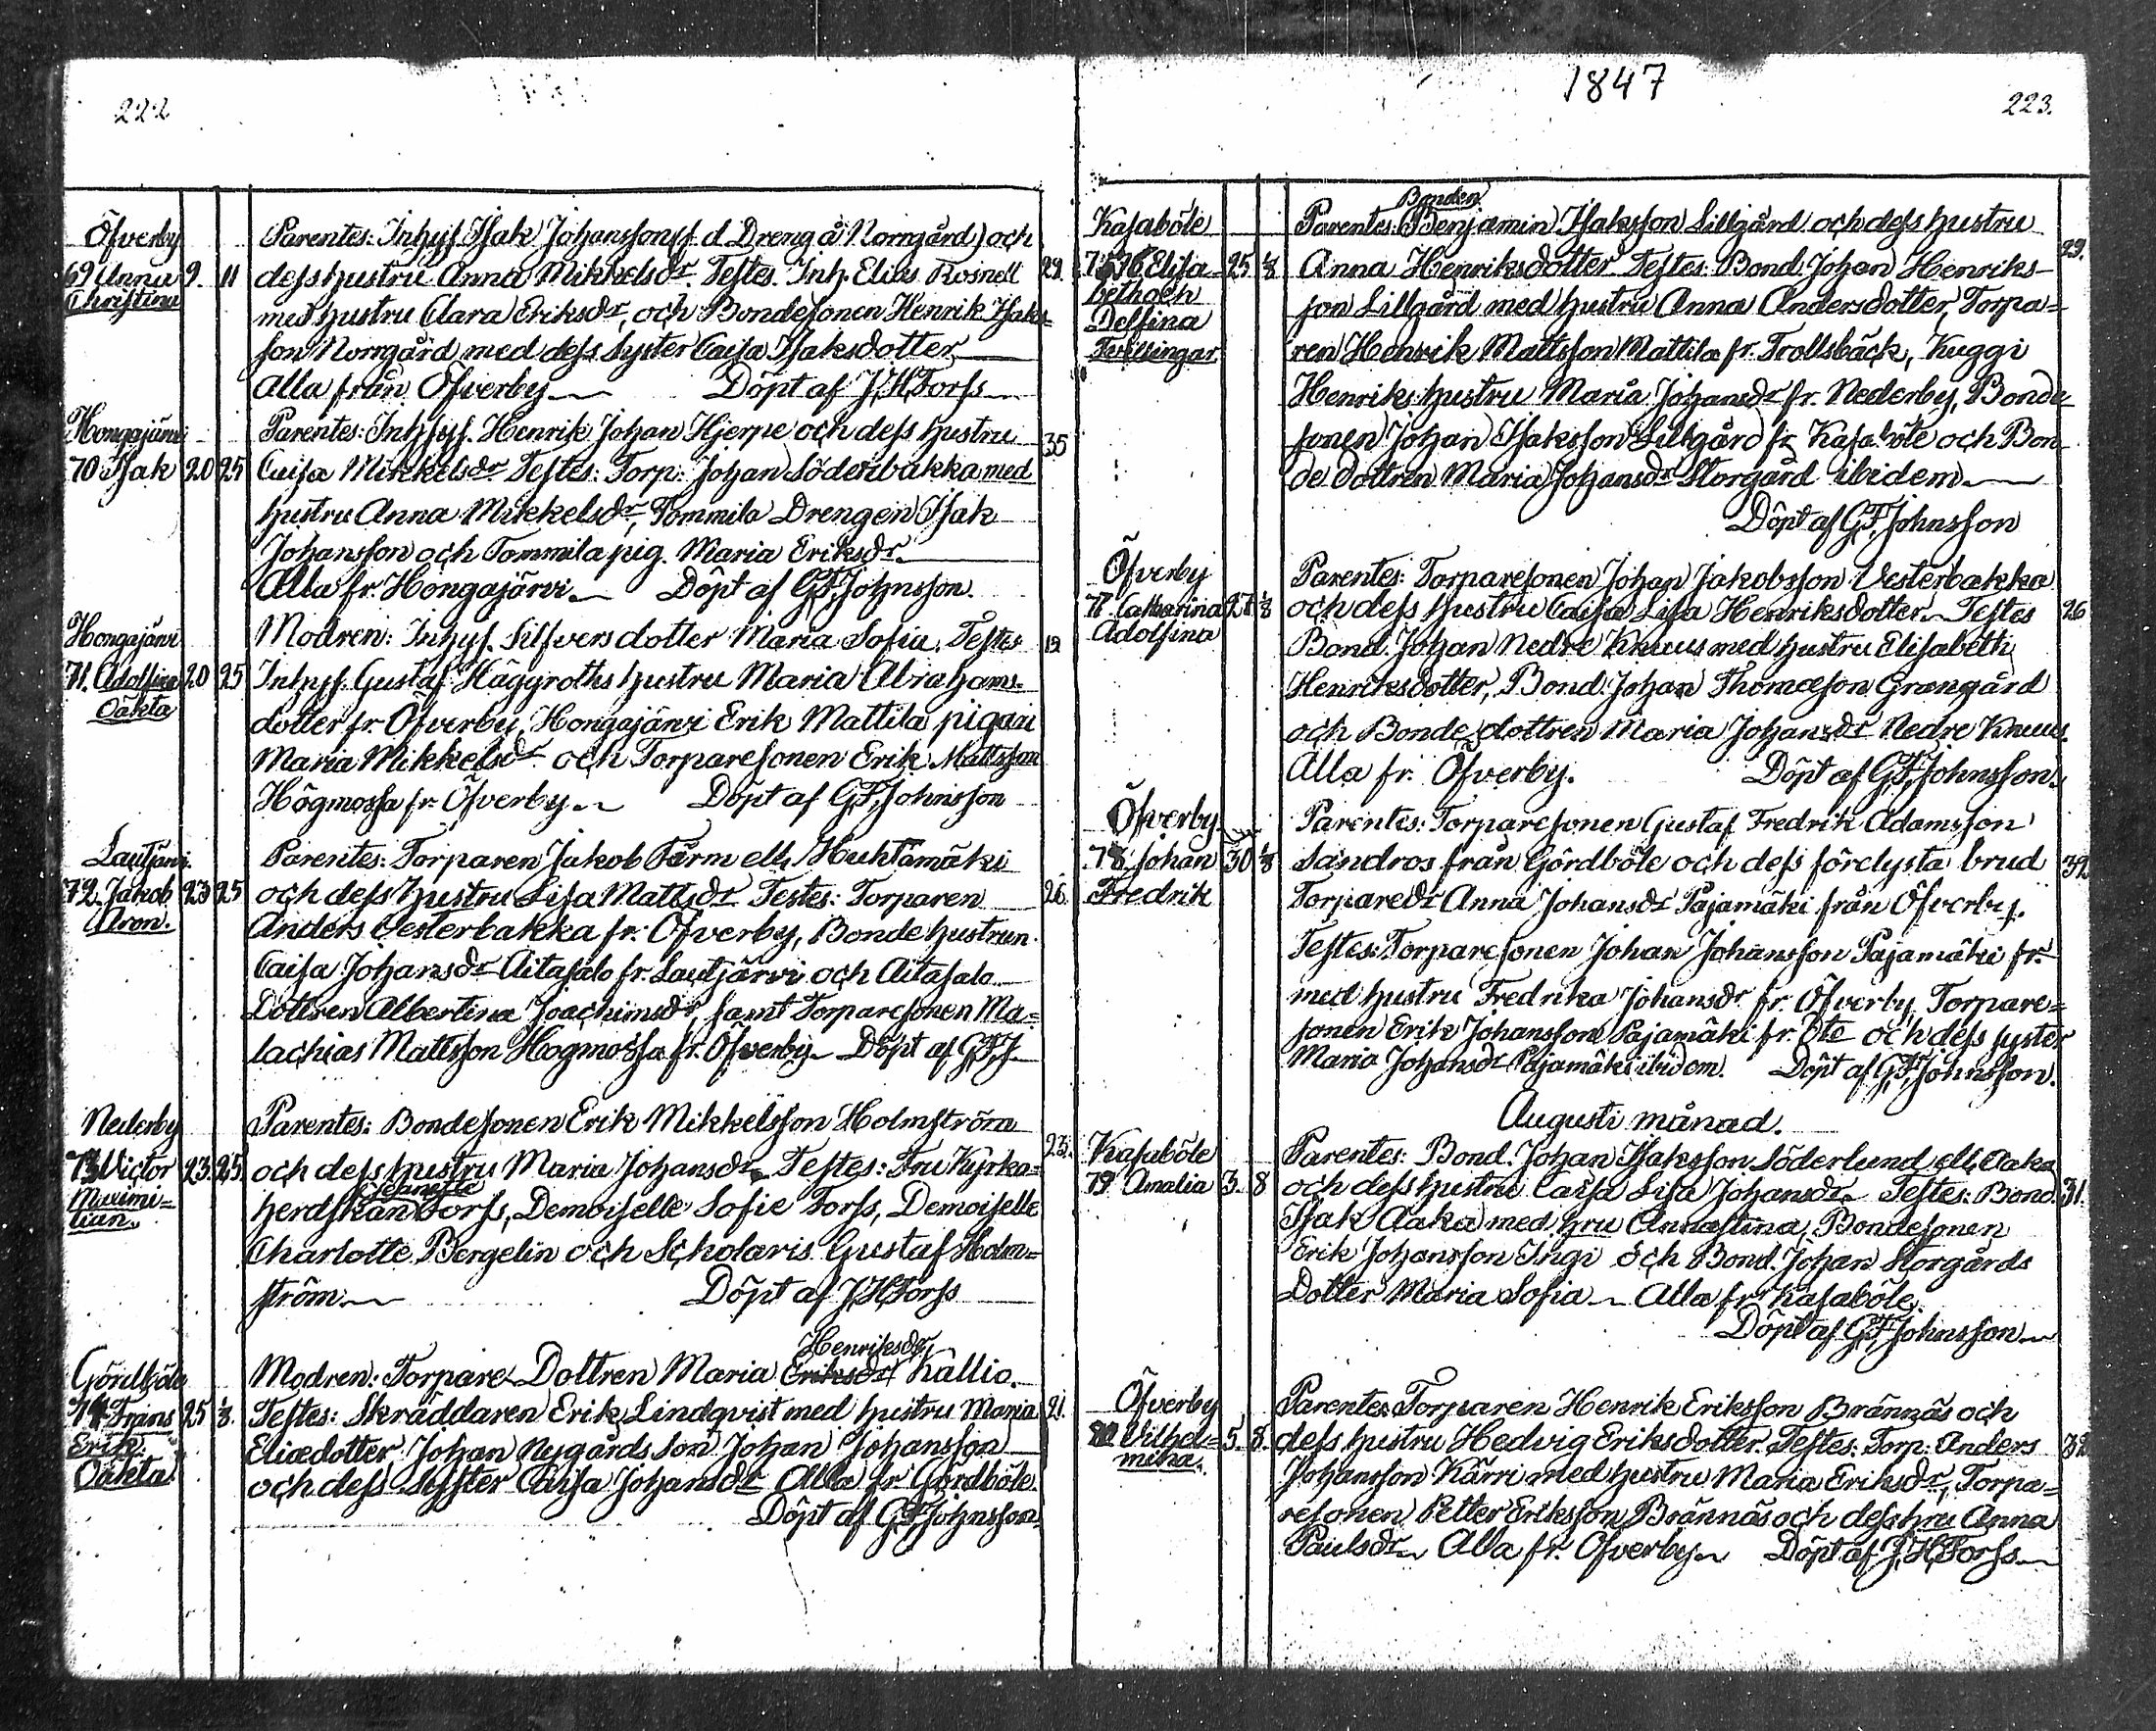 222
Öfverby
69 Anna 9. 11
Christina
Parentes: Inhys. Isak Johansson (f. d. Dreng å Norrgård) och
dess hustru Anna Mikkelsdr. Testes. Inh. Elias Rosnell 29.
med hustru Clara Eriksdr, och Bondesonen Henrik Isaks-
son Norrgård med dess Syster Caisa Isaksdotter
Alla från Öfverby Döpt af J.H.Forss
Hongajärvi
70 Isak 20 25
Parentes: Inhys. Henrik Johan Hjerpe och dess hustru 35
Caisa Mikkelsdr. Testes: Torp. Johan Söderbakka med
hustru Anna Mikkelsdr, Tommila Drengen Isak
Johansson och Tommila pig. Maria Eriksdr.
Alla fr. Hongajärvi. Döpt af G.F.Johnsson.
Hongajärvi
71. Adolfina 20 25
Oäkta
Modren: Inhys. Silfvers dotter Maria Sofia. Testes
Inhys. Gustaf Häggroths hustru Maria Abrahams-
dotter fr. Öfverby, Hongajärvi Erik Mattila pigan
Maria Mikkelsdr. och Torparesonen Erik Mattsson
Högmossa fr. Öfverby. Döpt af G.F.Johnsson
Lautjärvi.
72. Jakob 23 25
Aron.
Parentes: Torparen Jakob Färm ell. Huhtämäki
och dess hustru Lisa Mattsdr. Testes: Torparen 26.
Anders Vesterbakka fr. Öfverby, Bondehustrun
Caisa Johansdr Aitasalo fr. Lautjärvi och Aitasalo
Dottren Albertina Joachimsdr, samt Torparesonen Ma=
lachias Mattsson Högmossa fr. Öfverby. Döpt af G.F.J.
Nederby
73 Victor 23. 25.
Maximi=
lian.
Parentes: Bondesonen Erik Mikkelsson Holmström
och dess hustru Maria Johansdr. Testes: Fru Kyrka= 23.
herdskan Forss, Demoiselle Sofie Forss, Demoiselle
Charlotte Bergelin och Scholaris Gustaf Holm=
ström. Döpt af J.H.Forss
Henriksdr
Gördböle
74 Frans 25 1/8.
Erik.
Oäkta.
Modren: Torpare Dottren Maria Eriksdr Kallio.
Testes: Skräddaren Erik Lindqvist med hustru Maria 21.
Eliædotter, Johan Nygårds Son Johan Johansson
och dess Syster Caisa Johansdr Alla fr. Gördböle.
Döpt af G.F.Johnsson.
1847
223.
Bonden
Kasaböle
75 76 Elisa- 25 1/8
beth och
Delfina
Tvillingar
Parentes: Benjamin Isaksson Lillgård och dess hustru
Anna Henriksdotter. Testes: Bond. Johan Henriks- 29.
son Lillgård med hustru Anna Andersdotter, Torpa=
ren Henrik Mattsson Mattila fr. Trollsbäck, Kuggi
Henriks hustru Maria Johansdr fr. Nederby, Bonde
sonen Johan Isaksson Lillgård fr. Kasaböle och Bon
de dottren Maria Johansdr Storgård ibidem
Döpt af G.F.Johnsson
Öfverby
77. Catharina 27 1/8
Adolfina
Parentes: Torparesonen Johan Jakobsson Vesterbakka
och dess hustru Caisa Lisa Henriksdotter. Testes 26
Bond. Johan Nedre Knuus med hustru Elisabeth
Henriksdotter, Bond. Johan Thomæson Grangård
och Bonde dottren Maria Johansdr Nedre Knuus.
Alla fr. Öfverby. Döpt af G.F.Johnsson.
Öfverby.
78 Johan 30 1/8
Fredrik
Parentes: Torparesonen Gustaf Fredrik Adamsson
Sandros från Gördböle och dess förelysta brud 32
Torparedr Anna Johansdr Pajamäki från Öfverby.
Testes: Torparesonen Johan Johansson Pajamäki fr.
med hustru Fredrika Johansdr. fr. Öfverby, Torpare=
sonen Erik Johansson Pajamäki fr. Dto och dess syster
Maria Johansdr Pajamäki ibidem. Döpt af G.F.Johnsson.
Augusti månad.
Kasaböle
79 Amalia 3. 8
Parentes: Bond. Johan Isaksson Söderlund ell. Aaka
och dess hustru Caisa Lisa Johansdr. Testes: Bond. 31.
Isak Aaka med hru Annastina, Bondesonen
Erik Johansson Ingi och Bond. Johan Storgårds
Dotter Maria Sofia. Alla fr. Kasaböle.
Döpt af G.F.Johnsson
Öfverby
80 Vilhel= 5. 8.
mina.
Parentes Torparen Henrik Eriksson Brännäs och
dess hustru Hedvig Eriksdotter. Testes: Torp. Anders
Johansson Kärri med hustru Maria Eriksdr, Torpa=
resonen Petter Eriksson Brännäs och dess hru Anna
Paulsdr. Alla fr. Öfverby. Döpt af J.H.Forss